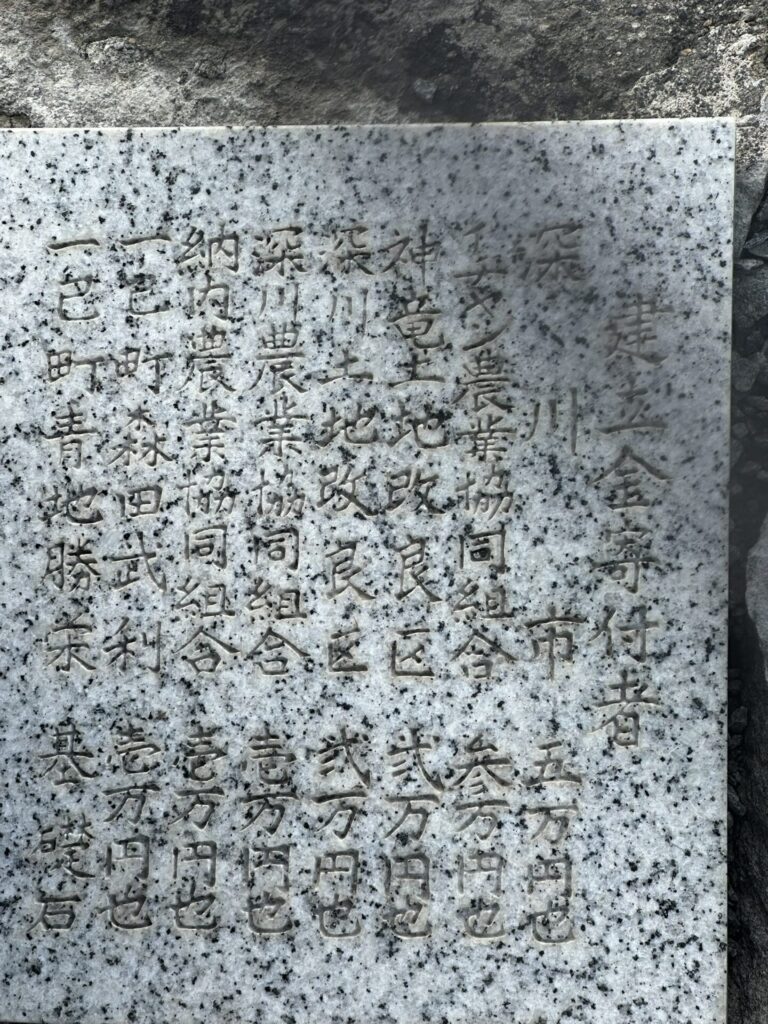 建立金寄付者
深川市 五万円也
イチヤン農業協同組合 参万円也
神竜土地改良区 弐万円也
深川土地改良区 弐万円也
深川農業協同組合 壱万円也
納内農業協同組合 壱万円也
一已町森田武利 壱万円也
一已町青地勝栄 基礎石